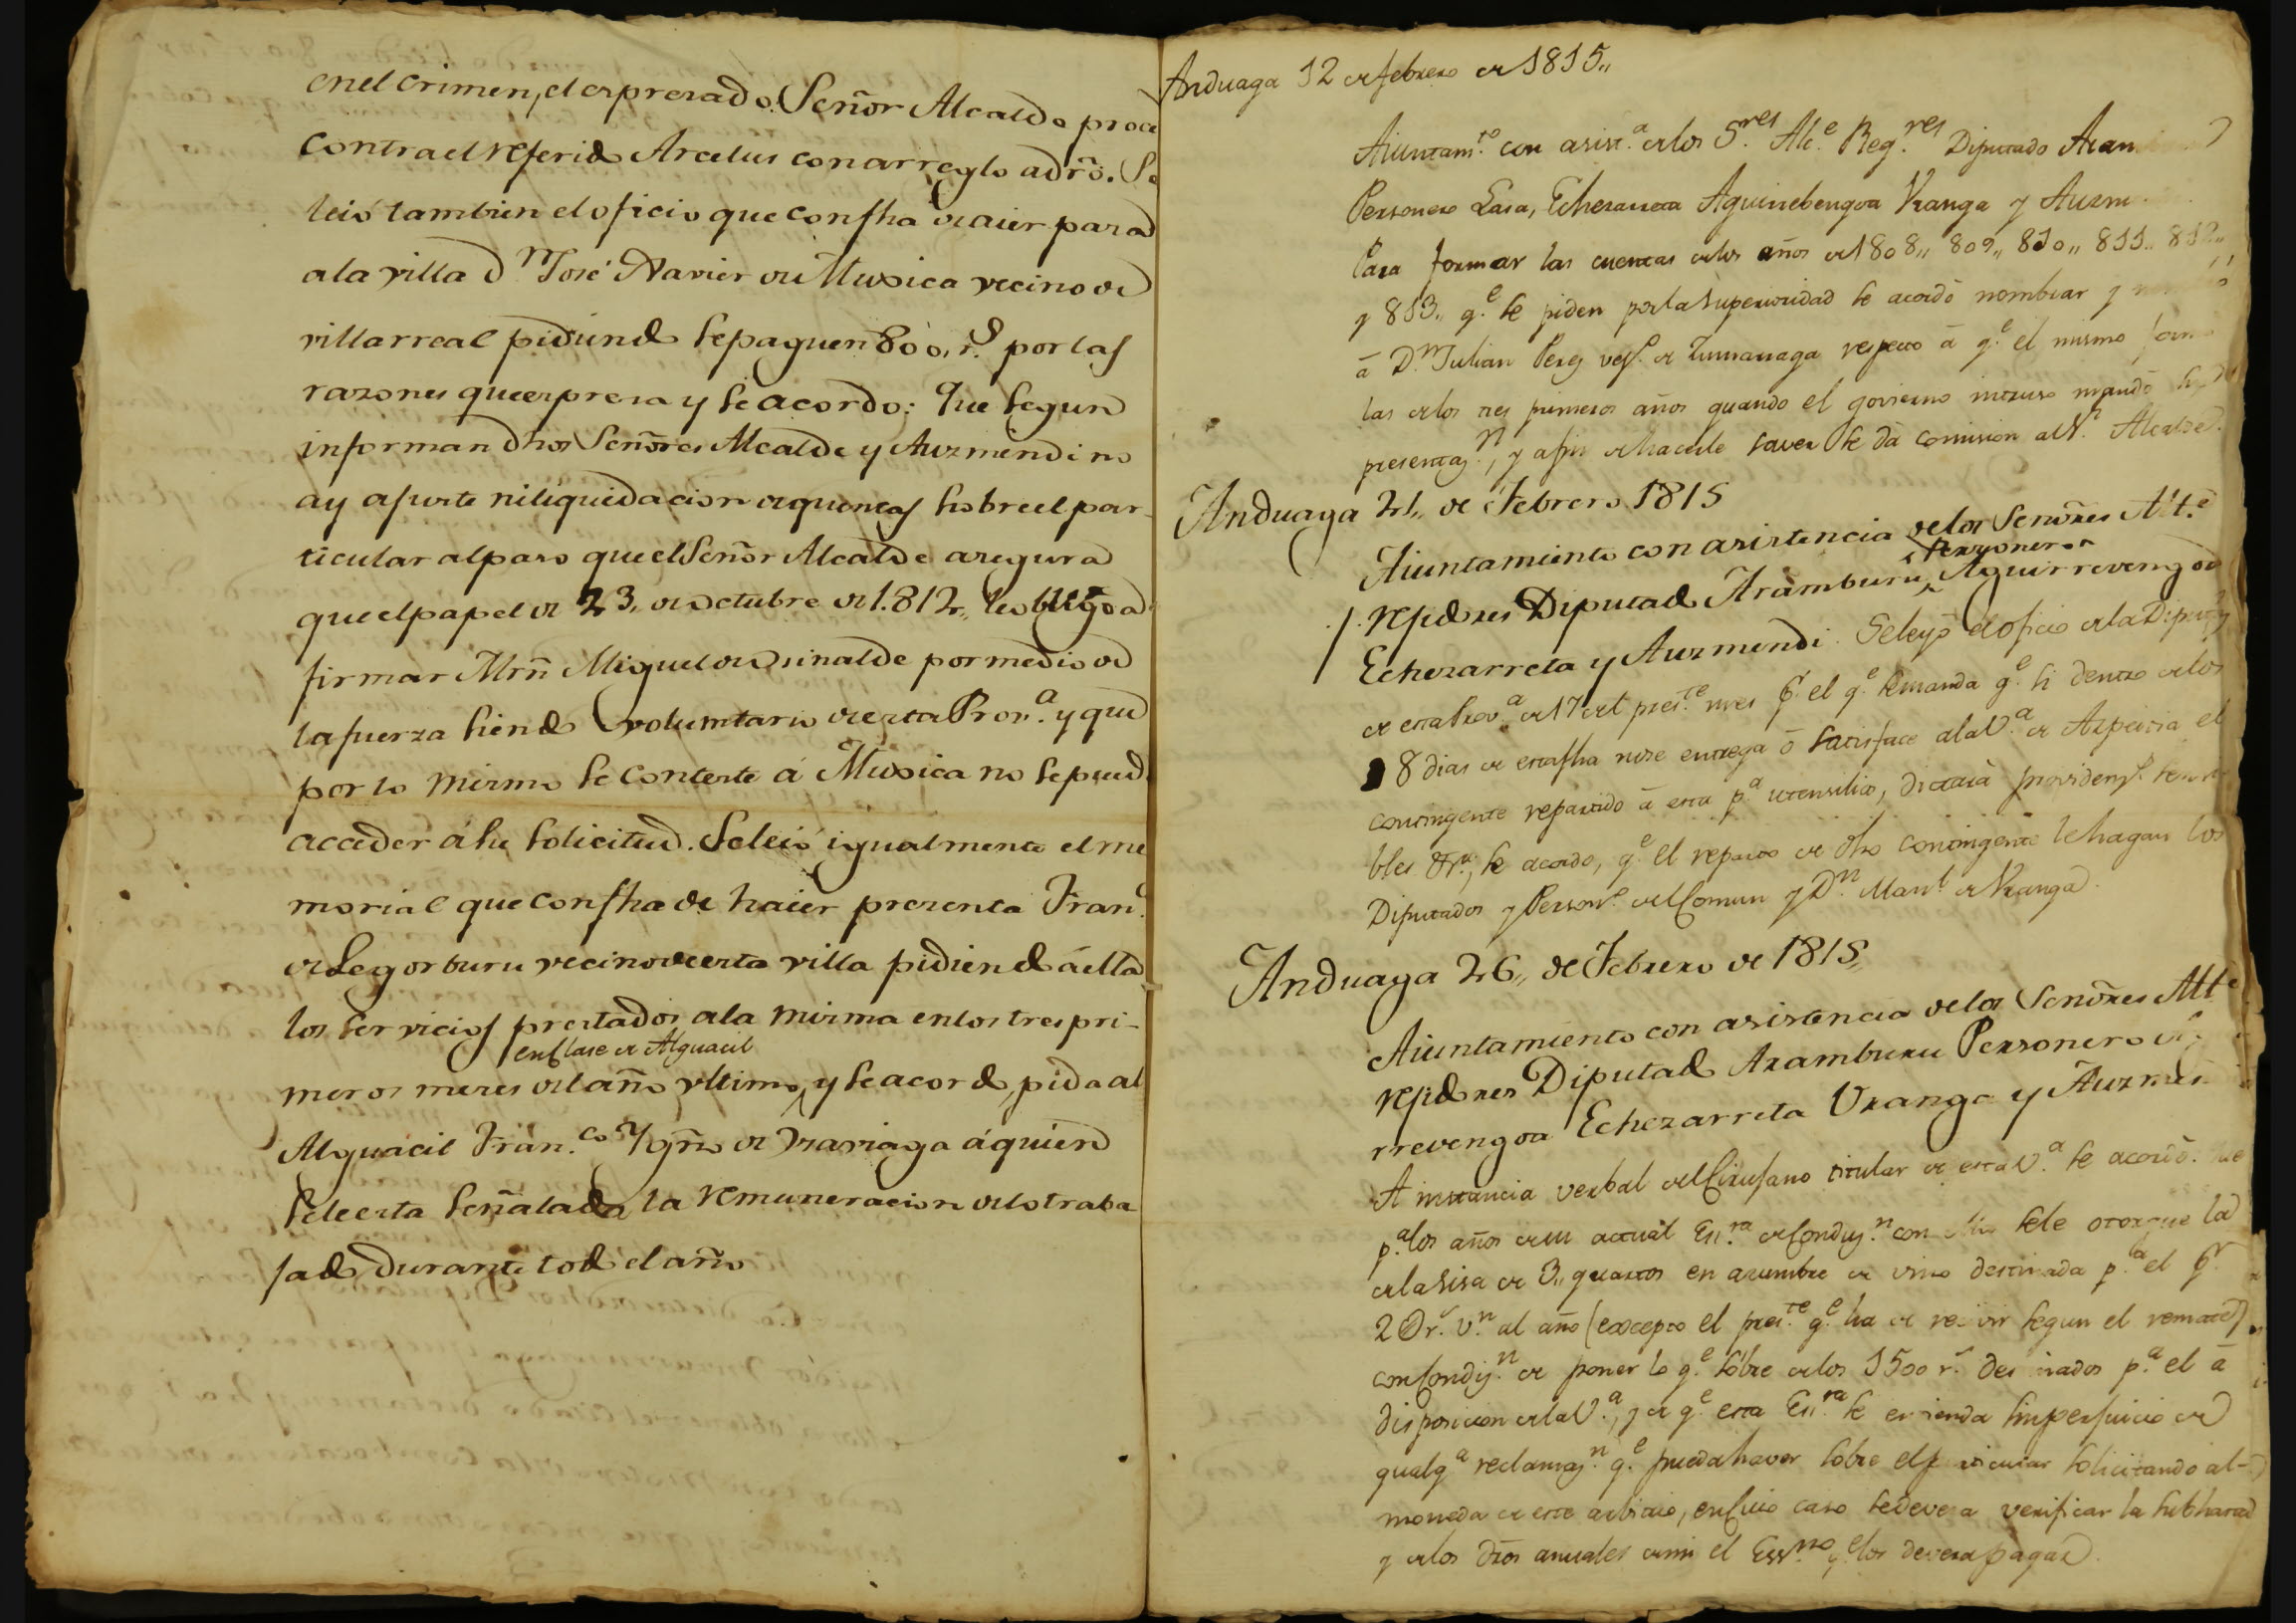 en el crimen, el expresado Señor Alcalde proce
contra el referido Arcelus con arreglo a dr̃o. Se
leió tambien el oficio que con fha de aier pasa
a la villa Dn José Xavier de Muxica vecino de
villarreal pidiendo se paguen 800, rs. por las
razones que expresa y se acordo: Que segun
informan dhos Señores Alcalde y Auzmendi no
ay ajuste ni liquidacion de quentas sobre el par-
ticular al paso que el Señor Alcalde asegura
que el papel de 23, de octubre de 1.812,, le obligo a
firmar Mrñ Miguel de por medio de
la fuerza siendo voluntario de esta Prova. y que
por lo mismo se conteste á Muxica no se puede
acceder á su solicitud. Se leió igualmente el me
morial que con fha de haier presenta Franco.
de Legorburu vecino de esta villa pidiendo á ella
los servicios prestados a la misma en los tres pri-
en clase de Alguacil
meros meses del año ultimo, y se acordo, pida al
Alguacil Fran.co Ygño de á quien
se le esta señalada la remuneracion de lo traba
jado durante todo el año
Anduaga 12 de febrero de 1815,,
Aiuntam.to con asist.a de los S.res Alc.e Reg.res Diputado Aram
Personero Lasa, Echezarreta Aguirrebengoa Uranga y Auzm
Para formar las cuentas de los años de 1808,, 809,, 810,, 811,, 812,,
y 813,, q.e se piden por la Superioridad se acordó nombrar y
á D.n Julian Perez vec.o de Zumarraga respecto á q.e el mismo
las de los tres primeros años quando el govierno intruso mandó su
presentaz.n, y a fin de hacerle saver se dá comision al S.r Alcalde.
Anduaga 21,, de Febrero 1815
Aiuntamiento con asistencia de los Señores Alt.e
Personero
rejidores Diputado Aramburu, Aguirrevengoa
Echezarreta y Auzmendi. Se leyó el oficio de la Diputaz.n
de esta Prov.a de 17 del pres.te mes p.r el q.e se manda q.e si dentro de los
8 dias de esta fha no se entrega ó satisface a la V.a de Azpeitia el
contingente repartido á esta p.a utensilios, dictará providenz.s sensi
bles &.ra, se acordo, q.e el reparto de dho contingente le hagan los
Diputados y Person.o del Comun y D.n Man.l de Uranga.
Anduaga 26,, de Febrero de 1815,,
Aiuntamiento con asistencia de los Señores Alt.e
rejidores Diputado Aramburu Personero
rrevengoa Echezarreta Uranga y Auzmen
A instancia verbal del Cirujano titular de esta V.a se acordó. que
p.a los años de su actual Es.ra de Conduz.n con se le otorgue la
de la sisa de 3,, quartos en azumbre de vino destinada p.a el p.r
20 r.s v.n al año (excepto el pres.te q.e ha de recivir segun el remate)
con condiz.n de poner lo q.e sobre de los 1500 r.s destinados p.a el á
disposicion de la V.a, y de q.e esta Es.ra se entienda sin perjuicio de
qualq.a reclamaz.n q.e pueda haver sobre el particular solicitando al-
moneda de este arbitrio, en cuio caso se devera verificar la subhasta
y de los dros anuales de mi el Ess.no q.e los devera pagar.